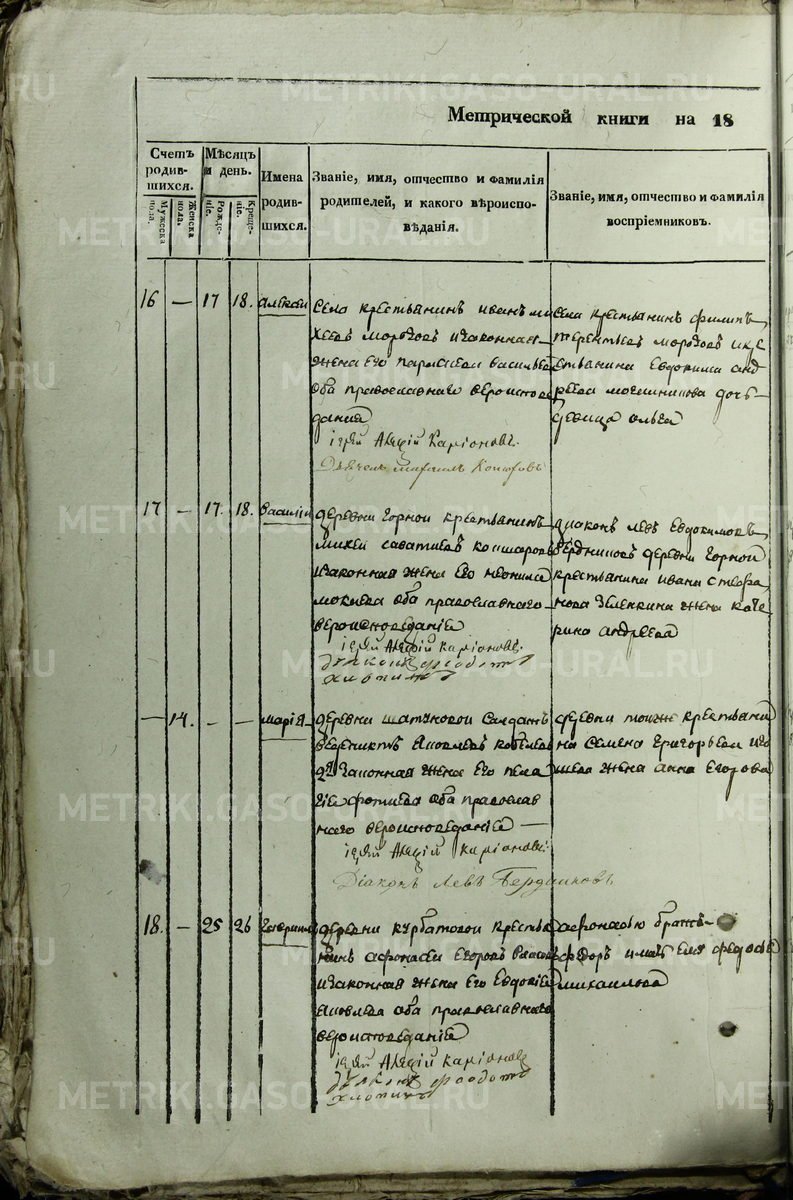 Метрической книги на 18
Счетъ родив-шихся.
Мужеска пола.
Женска пола.
Мѣсяцъ и день.
Рожде-ніе.
Креще-ніе.
Имена родив-шихся.
Званіе, имя, отчество и фамилія
родителей, и какого вѣроиспо-
вѣданія.
Званіе, имя, отчество и фамилія
воспріемниковъ.
16 — 17 18. Алексеи
Села крестьянинъ иванъ ми
хеевъ морозовъ изаконная
жена его парасковя васильева
оба православнаго вероиспове
дания
іерей Алексій Каріоновъ.
Села крестьянинъ филипъ
терентьевъ морозовъ и кре
стьянина Евдокима анд
реева дочь
девица ольга
17 — 17. 18. Василіи
деревни горнои крестьянинъ
михеи саватиевъ кошкаровъ
изаконная жена его неонила
мокиева оба православнаго
вероисповеданіе
іерей Алексій каріоновъ.
диаконъ левъ Евдокимовъ
бердниковъ деревни горнои
крестьянина ивана стефа
нова зеленкина жена кате
рина андреева
— 14. — — марія
деревни шатуновои солдатъ
венедиктъ яковлевъ
законная жена его пела
гіе фотиева оба православ
наго вероисповеданіе —
іерей Алексій каріоновъ.
Діаконъ Левъ Бердниковъ
деревни тоиже крестьяни
на семена григорьева
жена анна егорова
18. — 25 26
деревни курбатовои крестья
нинъ афонасеи егоровъ
изаконная жена его Евдокіе
яковлева оба православнаго
вероисповеданіе
іерей Алексій каріоновъ
афонасью братъ
федоръ и мать ему федосья
михаилова
METRIKI.GASO-URAL.RU